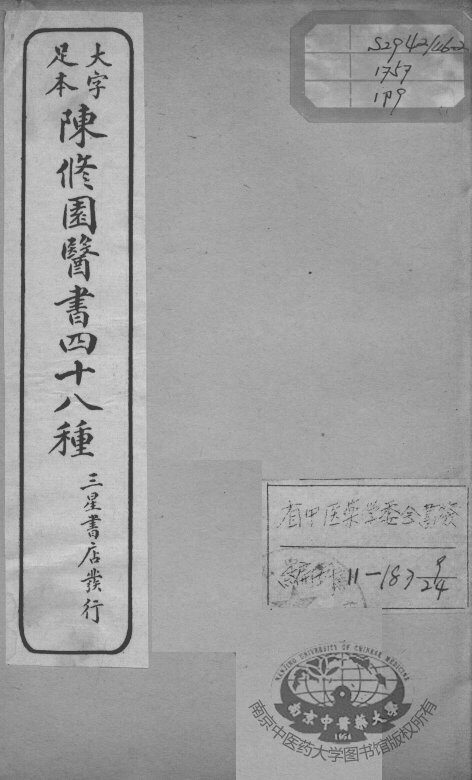 大字
足本
陳修園醫書四十八種
三星書店發行
S2942/16-2
1757
119
省中医藥学委会 書籤
11-183 9/24
NANJING UNIVERSITY OF CHINESE MEDICINE
南京中醫藥大學
1954
南京中医药大学图书馆版权所有